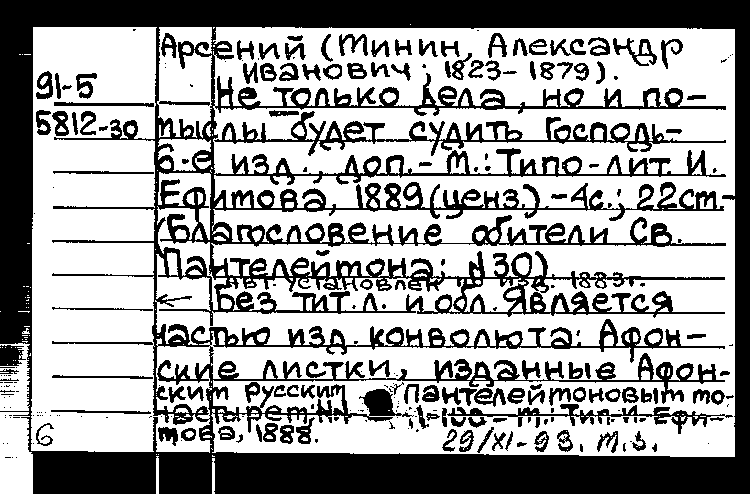 Арсений (Минин, Александр
Иванович; 1823-1879).
91-5
Не только дела, но и по-
5812-30
мыслы будет судить Господь-
6-е изд., доп.- М.: Типо-лит. И.
Ефимова, 1889 (ценз.).-4с.; 22см.-
(Благословение обители Св.
Пантелеймона; №30)
Авт. установлен по изд. 1883г.
← Без тит.л. и обл. Является
частью изд. конволюта: Афон-
ские листки, изданные Афон-
ским русским Пантелеймоновым мо-
настырем, №№ 1-100.- М.: Тип. И. Ефи-
мова, 1888.
6
29/XI-93. М.З.